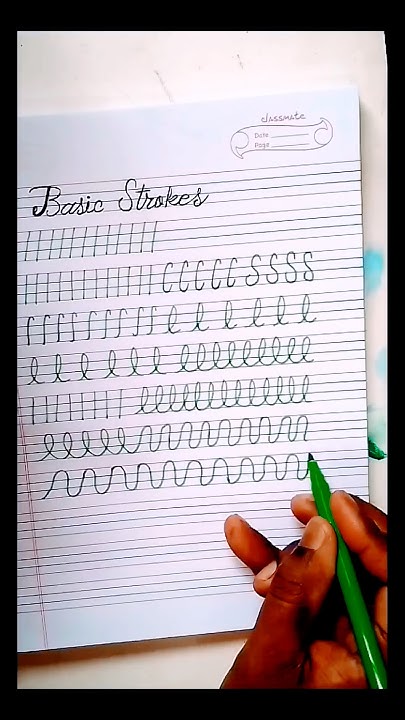 classmate
Date
Page
Basic Strokes
C C C C C S S S S
l l l l l l
l l l l l l l l l l l l l l
l l l l l l l l l l l
l l l l l